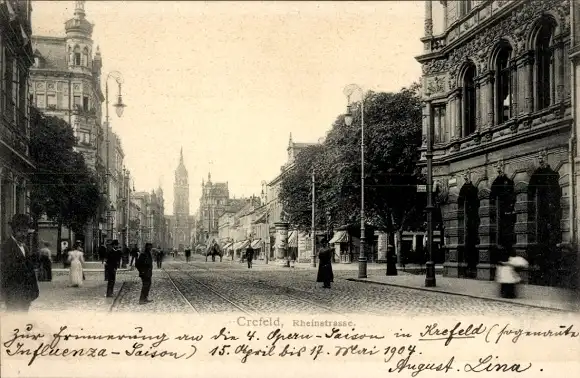 Crefeld, Rheinstrasse.
Zur Erinnerung an die 4. Opern-Saison in Krefeld (sogenannte
Influenza-Saison) 15. April bis 17. Mai 1904.
August. Lina.